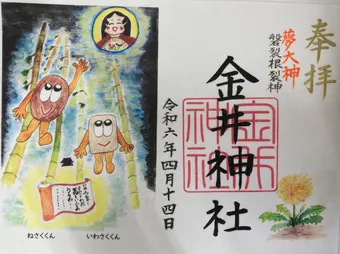 奉拝
夢大神
磐裂根裂神
金井神社
令和六年四月十四日
ねさくくん
いわさくくん